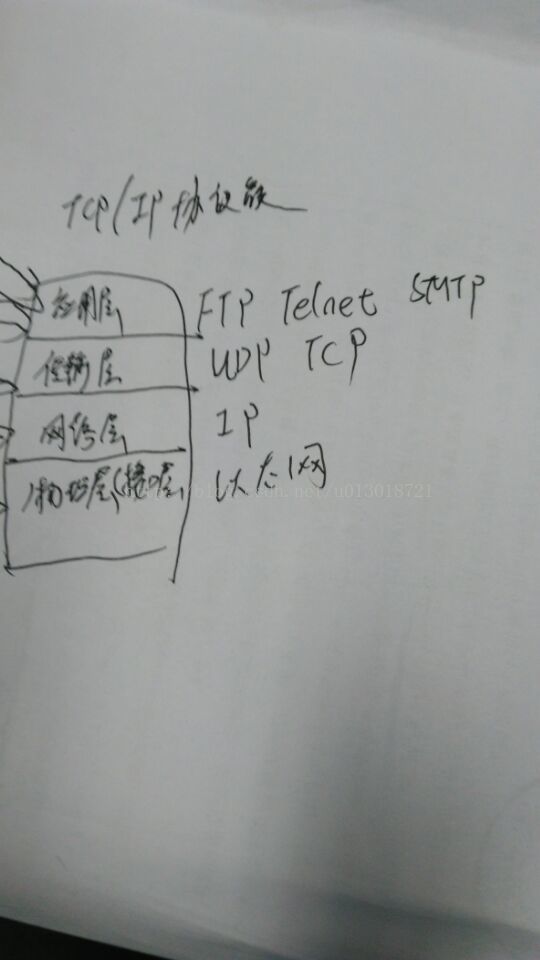 TCP/IP协议族
应用层 FTP Telnet SMTP
传输层 UDP TCP
网络层 IP
物理层(接口层 以太网
http://blog.csdn.net/u013018721